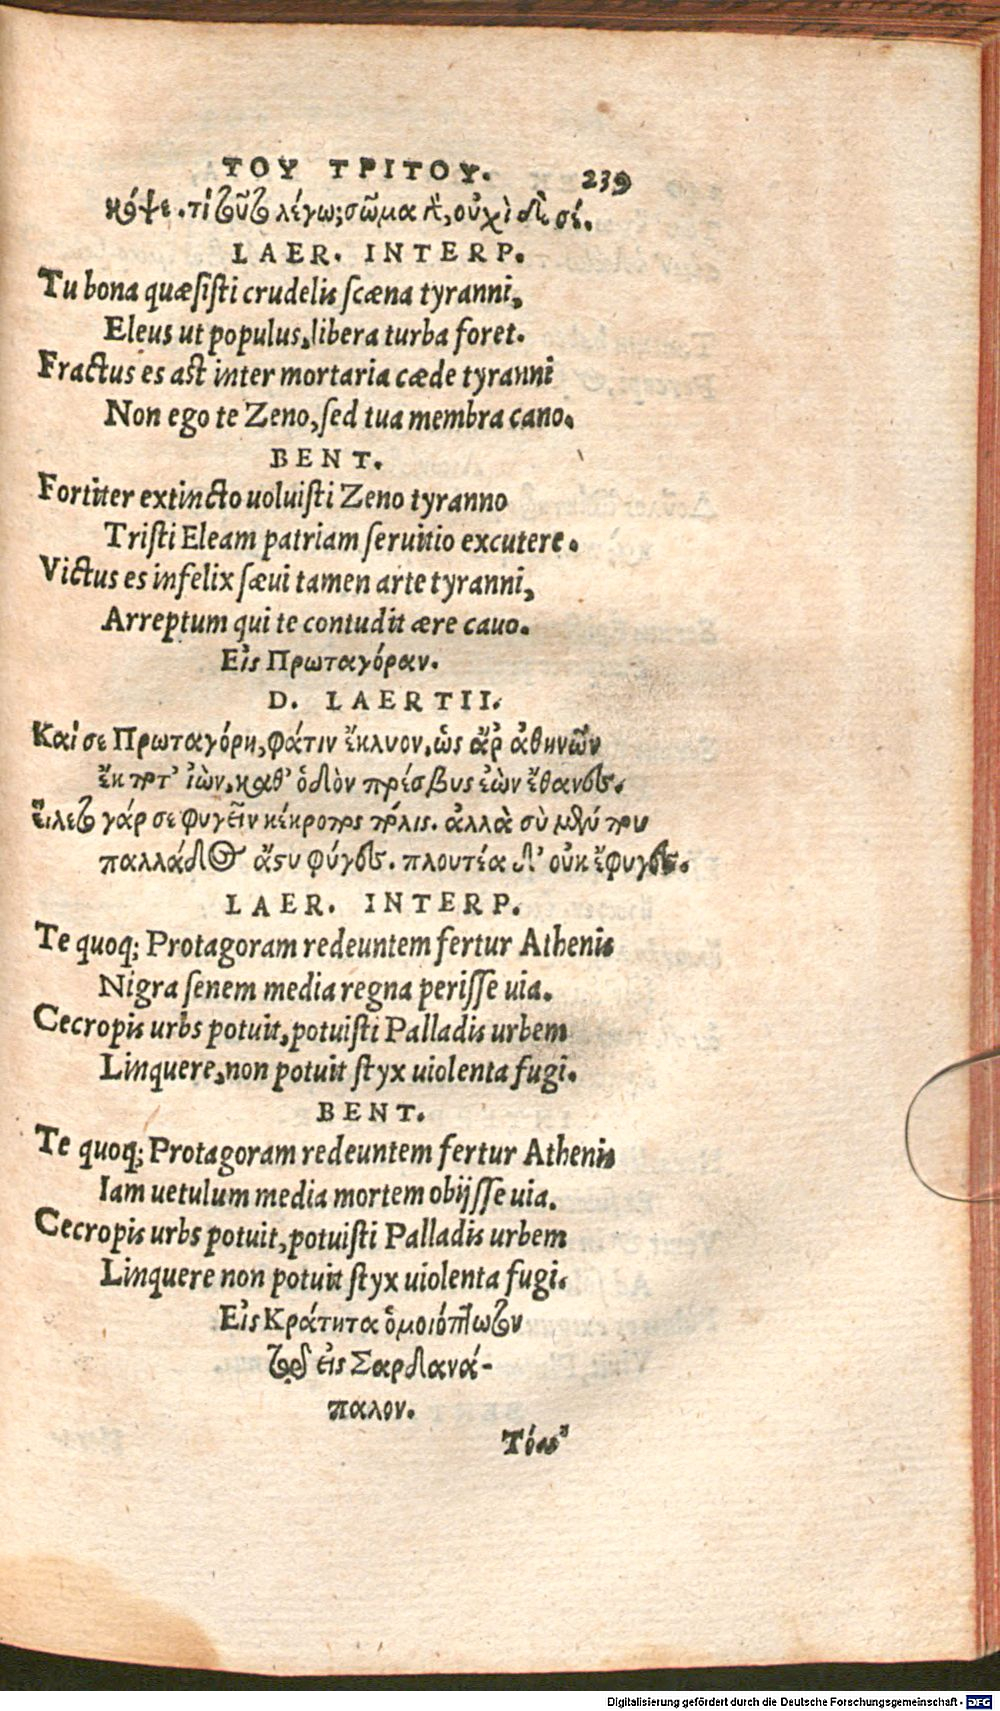 ΤΟΥ ΤΡΙΤΟΥ. 239
κόψε. τί τοῦτο λέγω; σῶμα γὰρ, οὐχὶ δὲ σέ.
LAER. INTERP.
Tu bona quæsisti crudelis scæna tyranni,
Eleus ut populus, libera turba foret.
Fractus es ast inter mortaria cæde tyranni
Non ego te Zeno, sed tua membra cano.
BENT.
Fortiter extincto uoluisti Zeno tyranno
Tristi Eleam patriam seruitio excutere.
Victus es infelix sæui tamen arte tyranni,
Arreptum qui te contudit ære cauo.
Εἰς Πρωταγόραν.
D. LAERTII.
Καί σε Πρωταγόρη, φάτιν ἔκλυον, ὡς ἄρ' ἀθηνῶν
ἔκ ποτ' ἰὼν, καθ' ὁδὸν πρέσβυς ἐὼν ἔθανες.
εἵλετο γάρ σε φυγεῖν κέκροπος πόλις. ἀλλὰ σὺ μὲν που
παλλάδος ἄστυ φύγες. πλουτέα δ' οὐκ ἔφυγες.
LAER. INTERP.
Te quoq; Protagoram redeuntem fertur Athenis
Nigra senem media regna perisse uia.
Cecropis urbs potuit, potuisti Palladis urbem
Linquere, non potuit styx uiolenta fugi.
BENT.
Te quoq; Protagoram redeuntem fertur Athenis
Iam uetulum media mortem obijsse uia.
Cecropis urbs potuit, potuisti Palladis urbem
Linquere non potuit styx uiolenta fugi.
Εἰς Κράτητα ὁμοιόπτωτον
τοῦ εἰς Σαρδανά-
παλον.
Digitalisierung gefördert durch die Deutsche Forschungsgemeinschaft - DFG